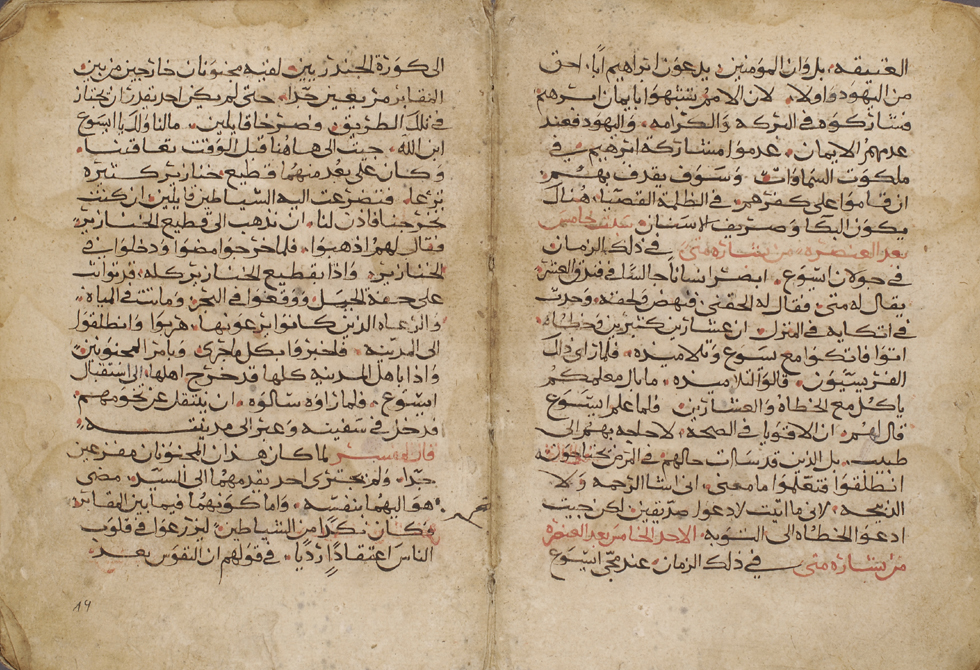 العتيقه. بل وان المومنين. يدعون ابراهيم ابًا. احق
من اليهود واولا. لان الامم تشبهوا بايمان ابرهيم
فشاركوه في البركه والكرامه. واليهود فعند
عدمهم الايمان. عدموا مشاركة ابرهيم في
ملكوت السماوات. وسوف يقذف بهم.
ان قاموا على كفرهم. في الظلمه القصيا. هناك
يكون البكا وصريف الاسنان. سبت الخامس
بعد العنصره. من بشاره متى في ذلك الزمان
في جولان ايسوع. ابصر انسانًا جالسًا في فندق العشر
يقال له متى. فقال له الحقني. فنهض ولحقه. وحدث
في اتكايه في المنزل. ان عشارين كثيرين وخطاه
اتوا فاتكوا مع يسوع وتلاميذه. فلما راى ذلك
الفريسيون. قالوا لتلاميذه. ما بال معلمكم
ياكل مع الخطاه والعشارين. فلما علم ايسوع
قال لهم. ان الاقويا في الصحه. لا حاجه بهم الى
طبيب. بل الذين قد سات حالهم في المرض يحتاجونه
انطلقوا فتعلموا ما معنى. انى نشا الرحمه ولا
الذبيحه. لانى ما اتيت لادعوا صديقين لكن جيت
ادعوا الخطاه الى التوبه. الاحد الخامس بعد العنصره
من بشاره متى في ذلك الزمان. عند مجي ايسوع
الى كورة الجندريين. لقيه مجنونان خارجين من بين
المقابر مريعين جدًا. حتى لم يكن احد يقدر ان يجتاز
في تلك الطريق. وصرخا قايلين. ما لنا ولك يا ايسوع
ابن الله. جيت الى هاهنا قبل الوقت تعاقبنا.
وكان على بعد منهما قطيع خنازير كثيره
يرعا. فتضرعت اليه الشياطين قايلين. ان كنت
تخرجنا فاذن لنا. ان نذهب الى قطيع الخنازير
فقال لهم اذهبوا. فلما خرجوا مضوا ودخلوا في
الخنازير. واذا بقطيع الخنازير كله. قد تواثب
على حفة الجبل. ووقعوا في البحر. وماتت في المياه
والرعاه الذين كانوا يرعونها. هربوا وانطلقوا
الى المدينه. فاخبروا بكل ما جرى. وبامر المجنونين
واذا باهل المدينه كلها قد خرج اهلها. الى استقبال
ايسوع. فلما راوه سالوه. ان ينتقل عن تخومهم.
فدخل في سفينه وعبر الى مدينته
قال المفسر لما كان هذان المجنونان مفزعين
جدًا. ولم يجترى احد يقدمهما الى السيد. مضى
هو اليهما بنفسه. واما كونهما فيما بين المقابر.
فكان نكدًا من الشياطين. ليزرعوا في قلوب
الناس اعتقادًا رديًا. في قولهم ان النفوس بعد
19